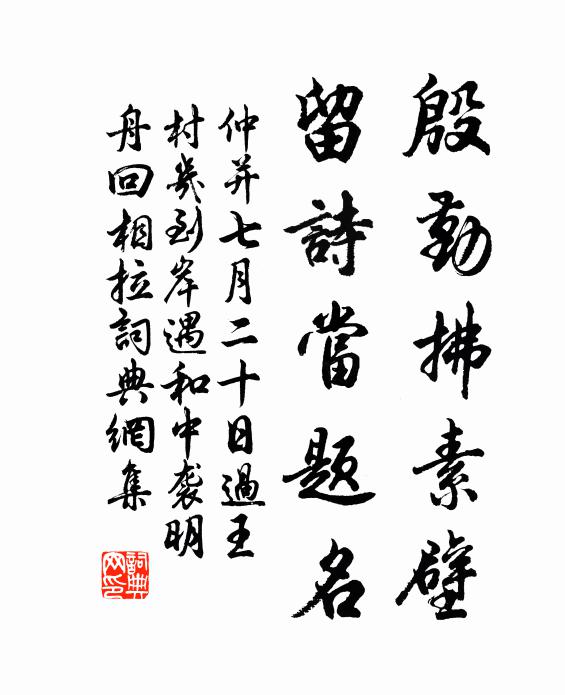 殷勤拂素壁
留詩當題名
仲并七月二十日過王
村幾到岸遇和中襲明
舟回相拉詞典網集
詞典網印